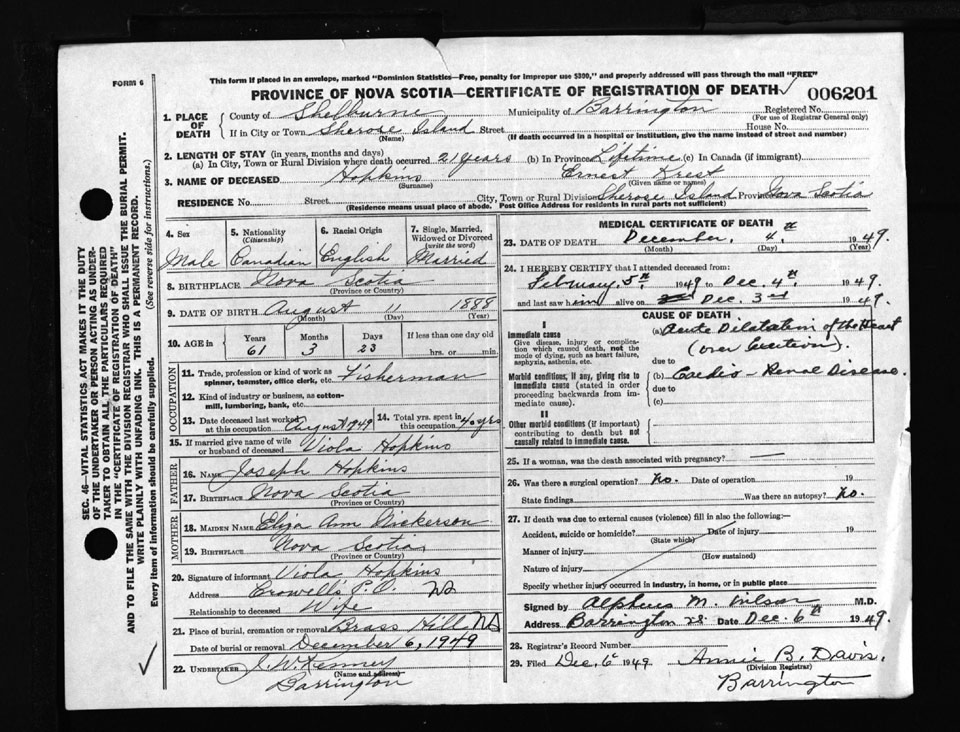 This form if placed in an envelope, marked "Dominion Statistics—Free, penalty for improper use $300," and properly addressed will pass through the mail "FREE"
FORM 6
PROVINCE OF NOVA SCOTIA—CERTIFICATE OF REGISTRATION OF DEATH
006201
SEC. 46—VITAL STATISTICS ACT MAKES IT THE DUTY
OF THE UNDERTAKER OR PERSON ACTING AS UNDER-
TAKER TO OBTAIN ALL THE PARTICULARS REQUIRED
IN THE "CERTIFICATE OF REGISTRATION OF DEATH"
AND TO FILE THE SAME WITH THE DIVISION REGISTRAR WHO SHALL ISSUE THE BURIAL PERMIT.
WRITE PLAINLY WITH UNFADING INK. THIS IS A PERMANENT RECORD.
Every item of information should be carefully supplied. (See reverse side for instructions.)
1. PLACE OF DEATH
County of Shelburne Municipality of Barrington Registered No.
(For use of Registrar General only)
If in City or Town Sherose Island Street House No.
(Name) (If death occurred in a hospital or institution, give the name instead of street and number)
2. LENGTH OF STAY (in years, months and days)
(a) In City, Town or Rural Division where death occurred 21 years (b) In Province Lifetime (c) In Canada (if immigrant)
3. NAME OF DECEASED Hopkins Ernest Krest
(Surname) (Given name or names)
RESIDENCE No. Street City, Town or Rural Division Sherose Island Province Nova Scotia
(Residence means usual place of abode. Post Office Address for residents in rural parts not sufficient)
4. Sex
Male
5. Nationality
(Citizenship)
Canadian
6. Racial Origin
English
7. Single, Married,
Widowed or Divorced
(write the word)
Married
8. BIRTHPLACE Nova Scotia
(Province or Country)
9. DATE OF BIRTH August 11 1888
(Month) (Day) (Year)
10. AGE in
Years Months Days If less than one day old
61 3 23 hrs. or min.
OCCUPATION
11. Trade, profession or kind of work as
spinner, teamster, office clerk, etc. Fisherman
12. Kind of industry or business, as cotton-
mill, lumbering, bank, etc.
13. Date deceased last worked
at this occupation August 1949
14. Total yrs. spent in
this occupation 40 yrs
15. If married give name of wife
or husband of deceased Viola Hopkins
FATHER
16. NAME Joseph Hopkins
17. BIRTHPLACE Nova Scotia
(Province or Country)
MOTHER
18. MAIDEN NAME Eliza Ann Nickerson
19. BIRTHPLACE Nova Scotia
(Province or Country)
20. Signature of informant Viola Hopkins
Address Crowell's P.O. NS
Relationship to deceased Wife
21. Place of burial, cremation or removal Brass Hill NS
Date of burial or removal December 6, 1949
22. UNDERTAKER J. W. Kenney
(Name and address)
Barrington
MEDICAL CERTIFICATE OF DEATH
23. DATE OF DEATH December, 4th 1949.
(Month) (Day) (Year)
24. I HEREBY CERTIFY that I attended deceased from:
February 5th 1949 to Dec. 4th 1949.
and last saw him alive on Dec. 3rd 1949.
CAUSE OF DEATH
I
Immediate cause
Give disease, injury or complica-
tion which caused death, not the
mode of dying, such as heart failure,
asphyxia, asthenia, etc.
(a) Acute Dilatation of the Heart
(over Exertion).
due to
Morbid conditions, if any, giving rise to
immediate cause (stated in order
proceeding backwards from im-
mediate cause).
(b) Cardio-Renal Disease.
due to
(c)
II
Other morbid conditions (if important)
contributing to death but not
causally related to immediate cause.
25. If a woman, was the death associated with pregnancy?
26. Was there a surgical operation? No. Date of operation 19
State findings Was there an autopsy? No.
27. If death was due to external causes (violence) fill in also the following:
Accident, suicide or homicide? Date of injury 19
(State which)
Manner of injury
(How sustained)
Nature of injury
Specify whether injury occurred in industry, in home, or in public place
Signed by Alpheus M. Wilson M.D.
Address Barrington NS. Date Dec. 6th 1949.
28. Registrar's Record No.
29. Filed Dec. 6 1949. Annie B. Davis.
(Division Registrar)
Barrington